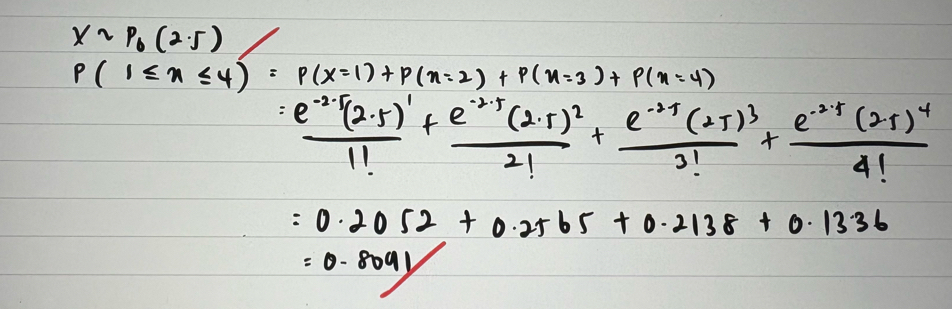 X ~ P₀ (2.5)
P( 1 ≤ x ≤ 4) = P(X=1) + P(x=2) + P(x=3) + P(x=4)
= e^-2.5 (2.5)^1 / 1! + e^-2.5 (2.5)^2 / 2! + e^-2.5 (2.5)^3 / 3! + e^-2.5 (2.5)^4 / 4!
= 0.2052 + 0.2565 + 0.2138 + 0.1336
= 0.8091